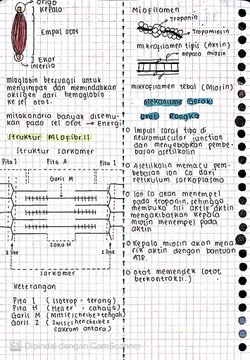 origo
Kepala
Empal otot
Ekor
Insersio
mioglobin berfungsi untuk
menyimpan dan memindahkan
oksigen dari hemoglobin
ke sel otot.
mitokondria banyak ditemu-
kan pada sel otot → Energi
Struktur Miofibril
Struktur Sarkomer
Pita I
Pita A
Pita I
Garis M
Z line
Zona H
Z line
Sarkomer
Keterangan
Pita I (Isotrop : terang)
Pita H (Heller : cahaya)
Garis M (Mittelscheibe : tengah)
Garis Z (Zwischenscheibe :
cakram antara)
Miofilamen
Troponin
Tropomiosin
mikrofilamen tipis (Aktin)
kepala miosin
mikrofilamen tebal (Miosin)
Mekanisme Gerak
Otot Rangka
Impuls saraf tiba di
neuromuscular junction
dan menyebabkan pembe-
basan asetilkolin
Asetilkolin memacu pem-
bebasan ion Ca dari
retikulum sarkoplasma
Ion Ca akan menempel
pada troponin, sehingga
membuka sisi aktif aktin
mengakibatkan kepala
miosin menempel pada
aktin
Kepala miosin akan mena-
rik aktin dengan bantuan
ATP.
otot memendek (otot
berkontraksi.)
CS Dipindai dengan CamScanner